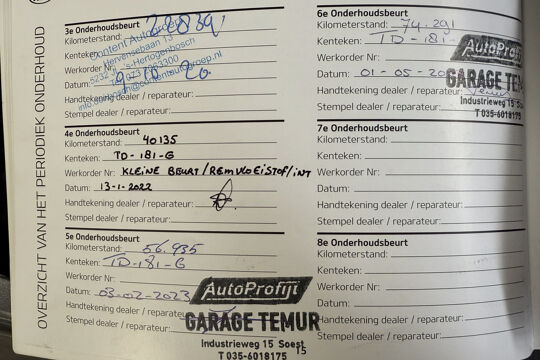 OVERZICHT VAN HET PERIODIEK ONDERHOUD
3e Onderhoudsbeurt
Kilometerstand:
Kenteken:
Werkorder Nr
Datum:
Handtekening dealer / reparateur:
Stempel dealer / reparateur:
's-Hertogenbosch
4e Onderhoudsbeurt
Kilometerstand: 40135
Kenteken: TD-181-G
Werkorder Nr: KLEINE BEURT/REMVLOEISTOF/INT
Datum: 13-1-2022
Handtekening dealer / reparateur:
Stempel dealer / reparateur:
5e Onderhoudsbeurt
Kilometerstand: 56.935
Kenteken: TD-181-G
Werkorder Nr:
Datum: 03-02-2023
Handtekening dealer / reparateur:
Stempel dealer / reparateur:
AutoProfijt
GARAGE TEMUR
Industrieweg 15 Soest
T 035-6018175
15
6e Onderhoudsbeurt
Kilometerstand: 74.291
Kenteken: TD-181-
Werkorder Nr:
Datum: 01-05-20
Handtekening dealer / reparateur:
Stempel dealer / reparateur:
AutoProfijt
GARAGE TEMUR
Industrieweg 15 Soest
T 035-6018175
7e Onderhoudsbeurt
Kilometerstand:
Kenteken:
Werkorder Nr:
Datum:
Handtekening dealer / reparateur:
Stempel dealer / reparateur:
8e Onderhoudsbeurt
Kilometerstand:
Kenteken:
Werkorder Nr:
Datum:
Handtekening dealer / reparateur:
Stempel dealer / reparateur: